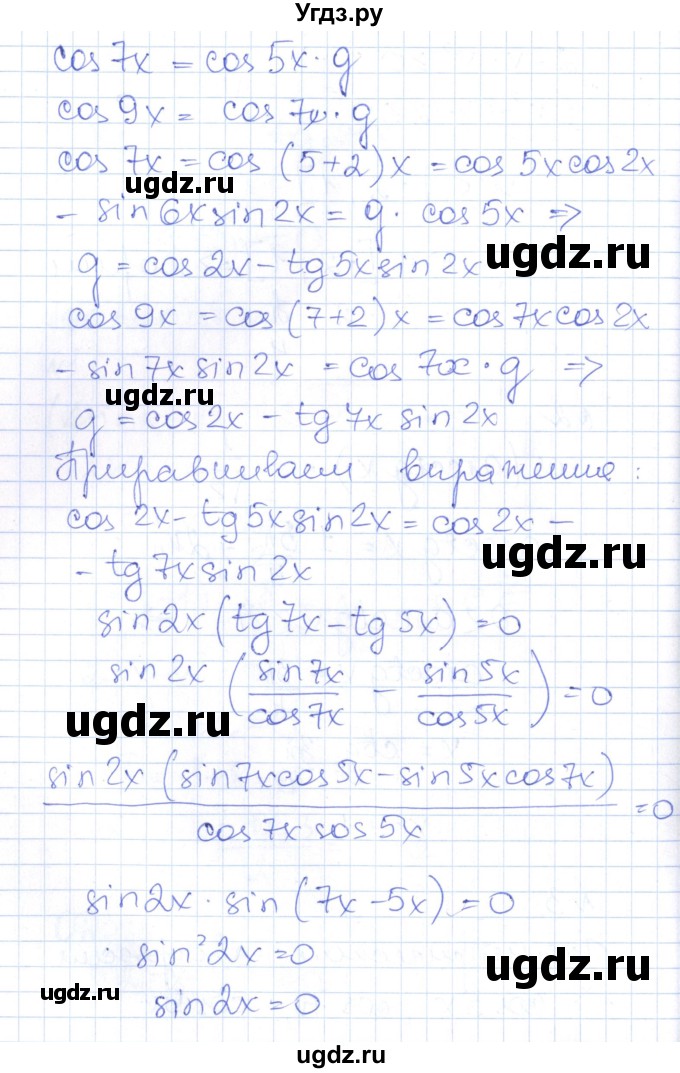 Угдз.ру
cos 7x = cos 5x · g
cos 9x = cos 7x · g
cos 7x = cos (5+2)x = cos 5x cos 2x
ugdz.ru
- sin 6x sin 2x = g · cos 5x ⇒
ugdz.ru
g = cos 2x - tg 5x sin 2x
cos 9x = cos (7+2)x = cos 7x cos 2x
- sin 7x sin 2x = cos 7x · g ⇒
ugdz.ru
g = cos 2x - tg 7x sin 2x
Приравниваем выражение:
cos 2x - tg 5x sin 2x = cos 2x -
ugdz.ru
- tg 7x sin 2x
sin 2x (tg 7x - tg 5x) = 0
sin 2x (sin 7x / cos 7x - sin 5x / cos 5x) = 0
ugdz.ru
sin 2x (sin 7x cos 5x - sin 5x cos 7x) / cos 7x sos 5x = 0
sin 2x · sin (7x - 5x) = 0
sin² 2x = 0
ugdz.ru
ugdz.ru
sin 2x = 0
ugdz.ru